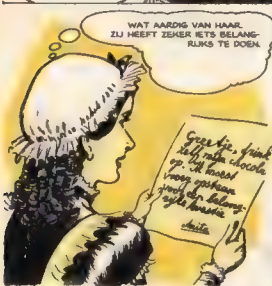 WAT AARDIG VAN HAAR.
ZIJ HEEFT ZEKER IETS BELANG-
RIJKS TE DOEN.
Greetje, drink
zelf mijn chocola
op. Ik moest
vroeg opstaan
voor een belang-
rijke kwestie
Anita